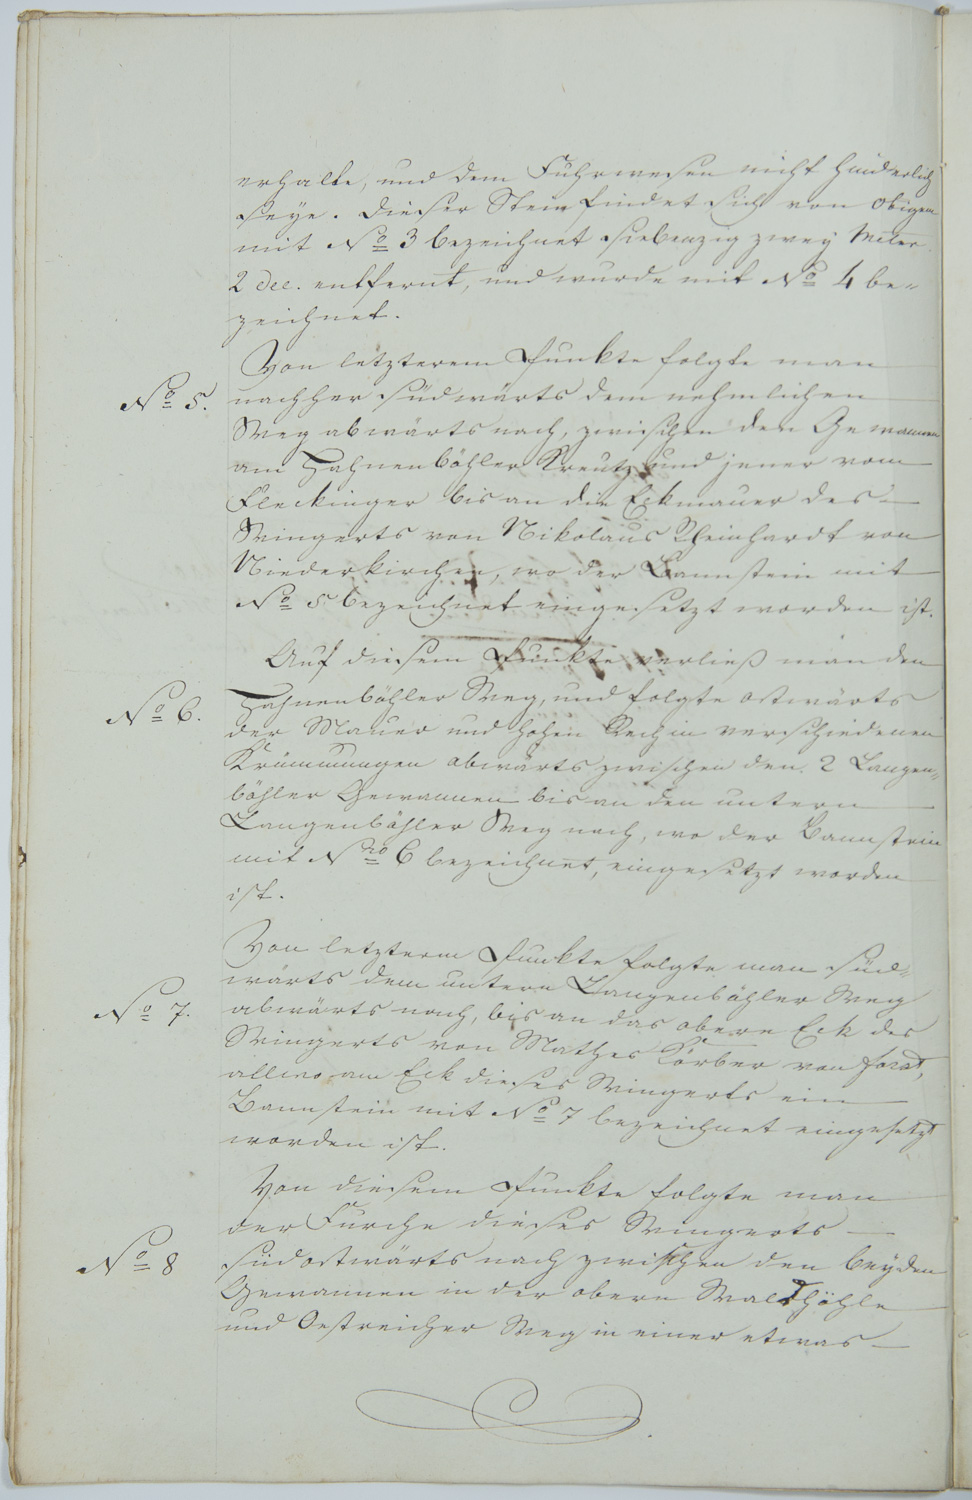 erhalte, und dem Fuhrwesen nicht hinderlich
seye. Dieser Stein findet sich von obigem
mit No 3 bezeichnet siebenzig zwey Meter
2 dec. entfernt, und wurde mit No 4 be-
zeichnet.
Von letzterem Punkte folgte man
No 5. nachher südwärts dem nehmlichen
Weg abwärts nach, zwischen den Gewannen
am Hahnenböhler Kreutz und jener vom
Fleckinger bis an die Eckmauer des
Wingerts von Nikolaus Rheinhardt von
Niederkirchen, wo der Bannstein mit
No 5 bezeichnet eingesetzt worden ist.
Auf diesem Punkte verließ man den
No 6. Hahnenböhler Weg, und folgte ostwärts
der Mauer und hohen Rech in verschiedenen
Krümmungen abwärts zwischen den 2 Langen-
böhler Gewannen bis an den untern
Langenböhler Weg nach, wo der Bannstein
mit Nro 6 bezeichnet, eingesetzt worden
ist.
Von letzterm Punkte folgte man süd-
wärts dem untern Langenböhler Weg
No 7. abwärts nach, bis an das obere Eck des
Wingerts von Mathes Körber von Forst,
allwo am Eck dieses Wingerts ein
Bannstein mit No 7 bezeichnet eingesetzt
worden ist.
Von diesem Punkte folgte man
der Furche dieses Wingerts
No 8 südostwärts nach zwischen den beyden
Gewannen in der obern Waldhöhle
und Oestreicher Weg in einer etwas